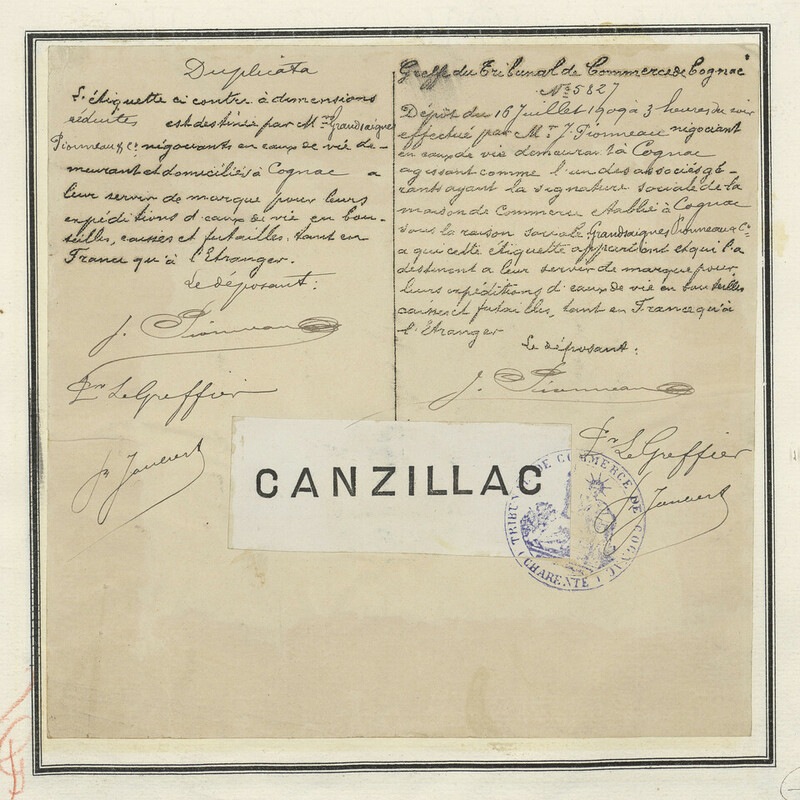 Duplicata
L'étiquette ci contre à dimensions
réduites est destinée par Mrs Grandsaignes
Pionneau & Co négociants en eaux de vie de-
meurant et domiciliés à Cognac a
leur servir de marque pour leurs
expéditions d'eaux de vie en bou-
teilles, caisses et futailles, tant en
France qu'à l'Etranger.
Le déposant:
J. Pionneau
Pr Le Greffier
Greffe du Tribunal de Commerce de Cognac
No 5827
Dépôt du 16 Juillet 1909 à 3 heures du soir
effectué par Mr J. Pionneau négociant
en eaux de vie demeurant à Cognac
agissant comme l'un des associés gé-
rants ayant la signature sociale de la
maison de Commerce établie à Cognac
sous la raison sociale Grandsaignes Pionneau & Co
a qui cette étiquette appartient et qui l'a
destinent a leur servir de marque pour
leurs expéditions d'eaux de vie en bouteilles
caisses et futailles, tant en France qu'à
l'Etranger
Le déposant:
J. Pionneau
Pr Le Greffier
CANZILLAC
TRIBUNAL DE COMMERCE DE COGNAC
(CHARENTE)